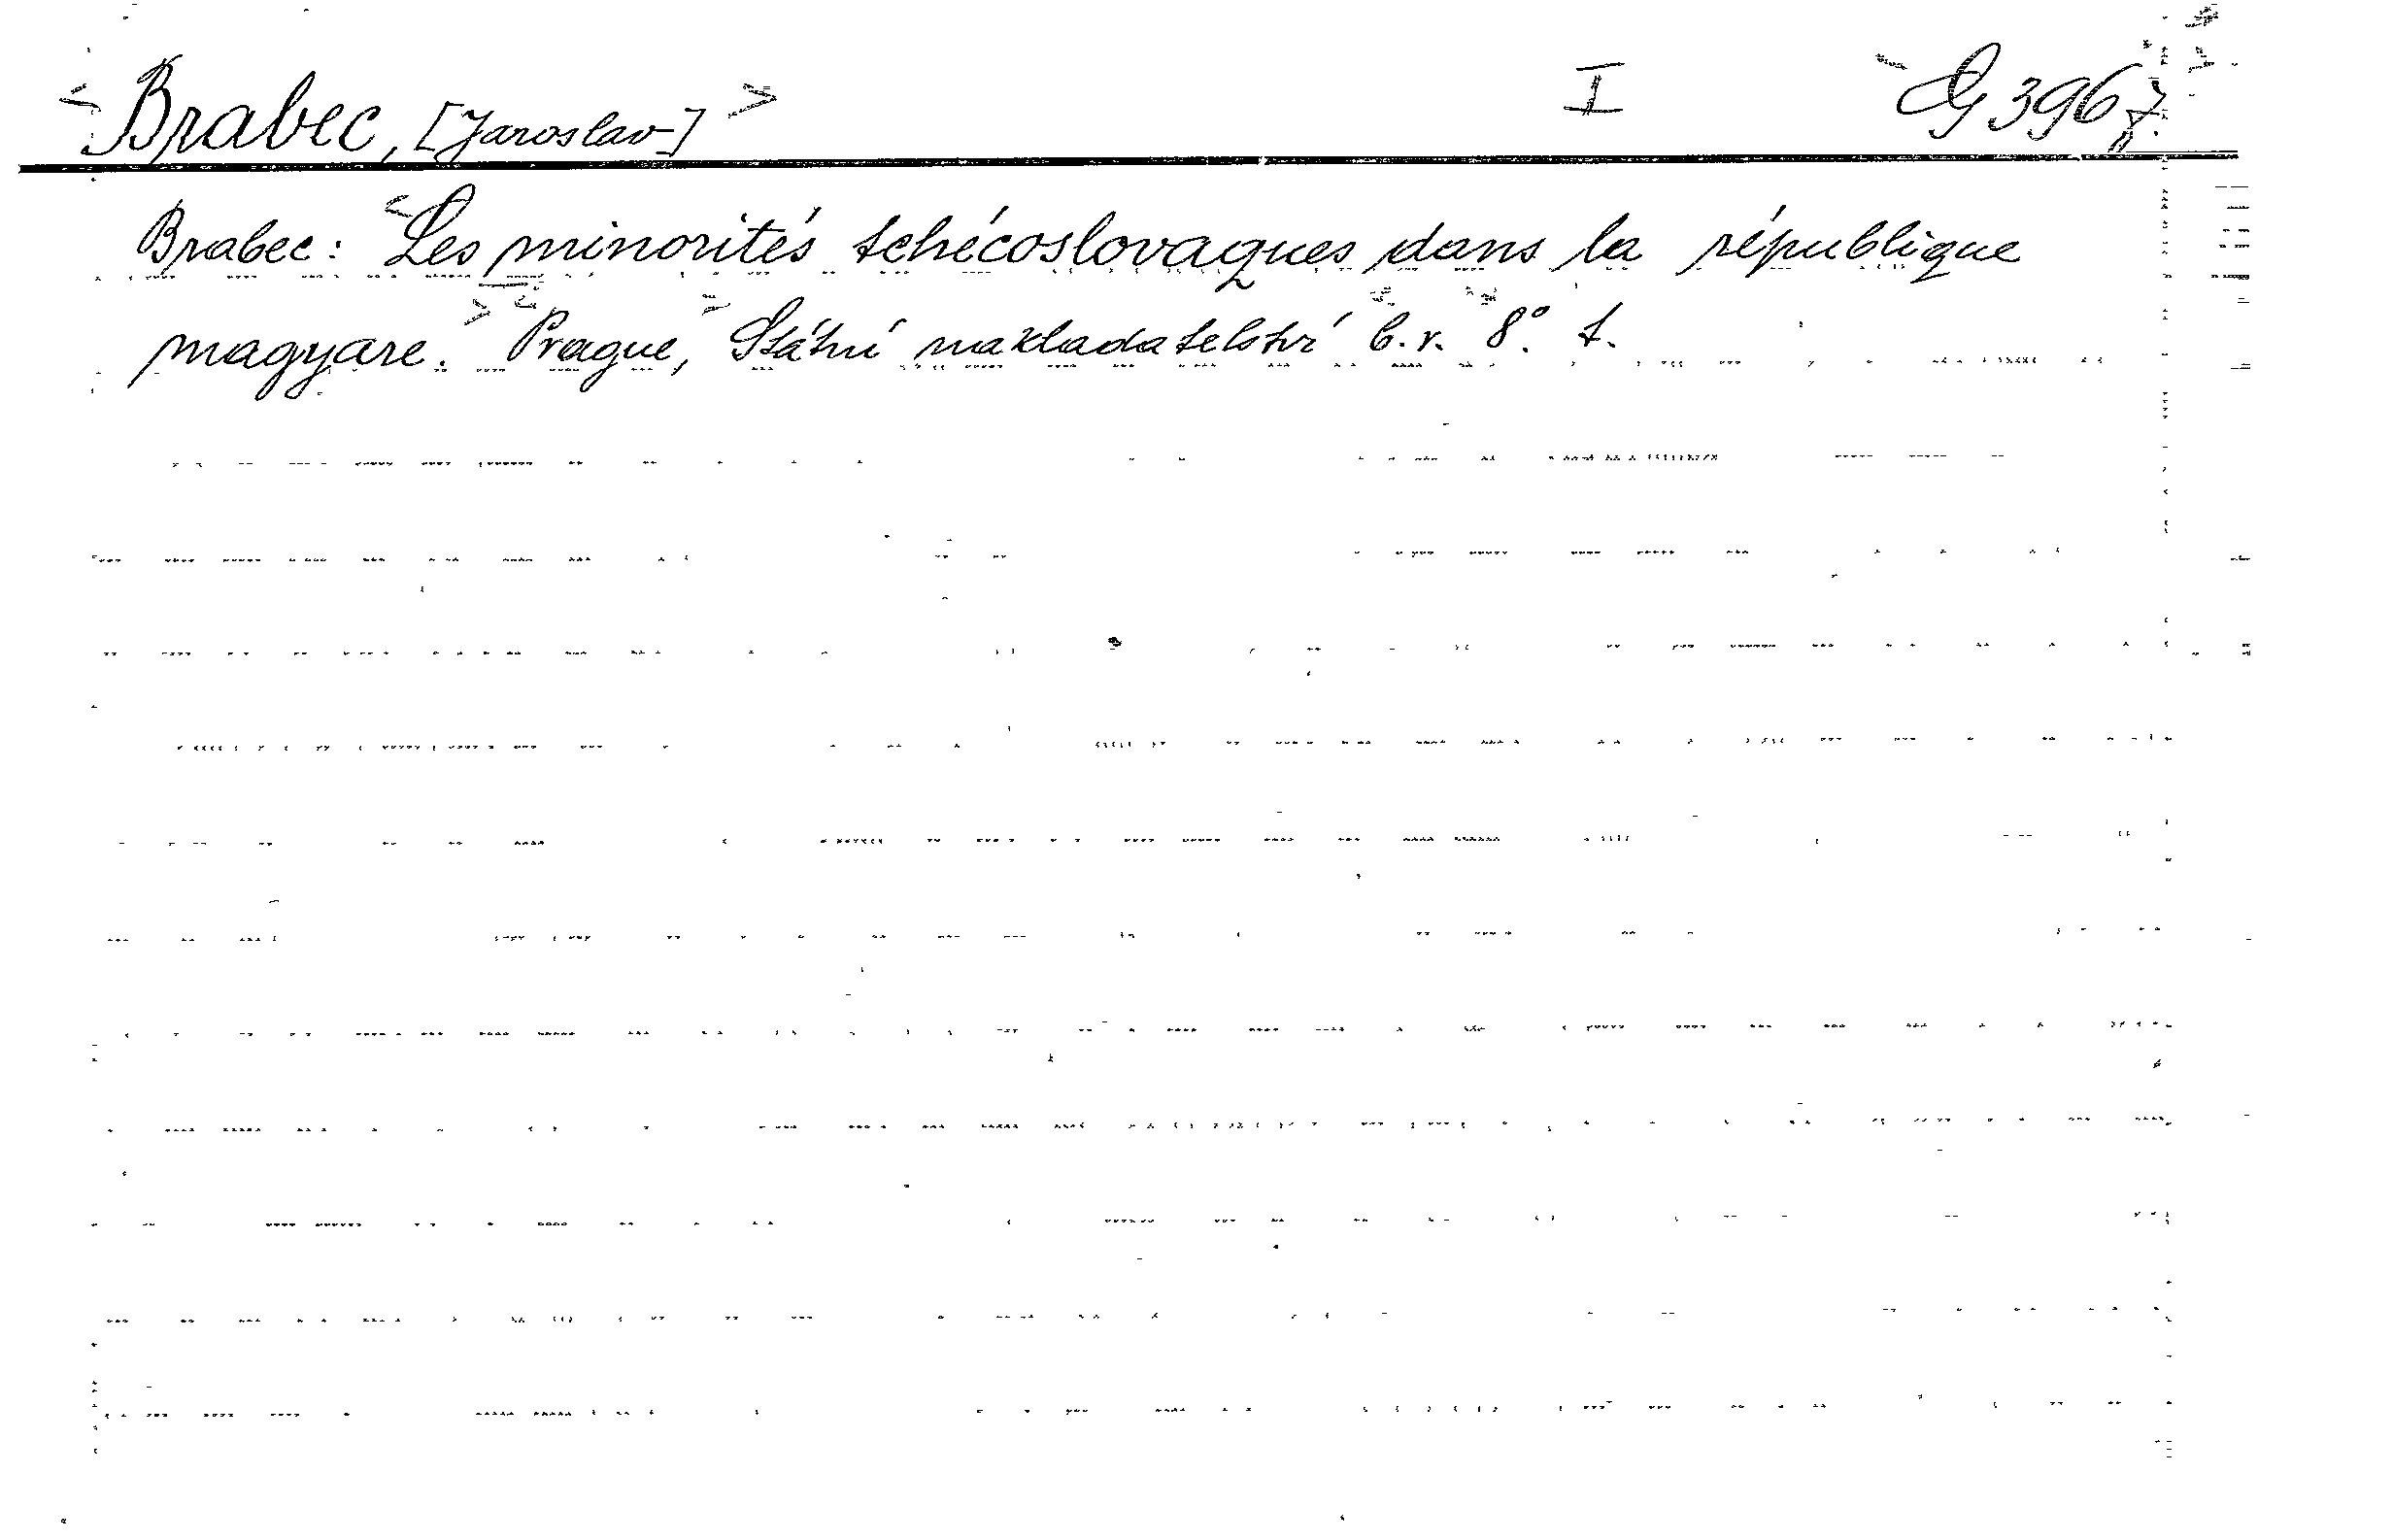 <Brabec, [Jaroslav]> I G 3967
Brabec: <Les minorités tchécoslovaques dans la république
magyare.> Prague, Státní nakladatelství b.r. 8°. t.